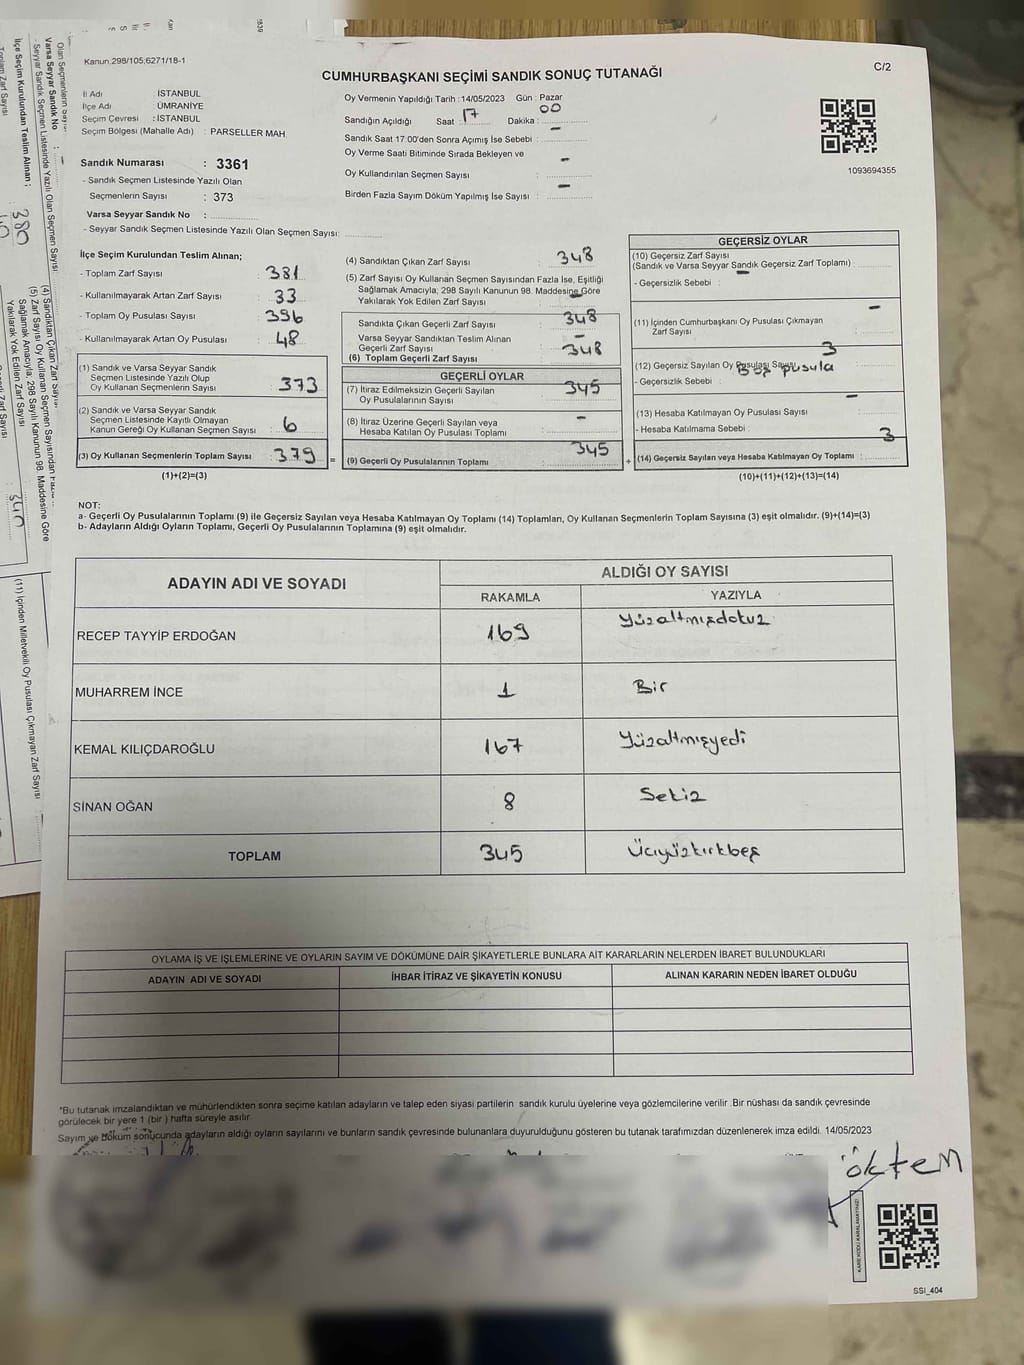 Kanun:298/105;6271/18-1
C/2
CUMHURBAŞKANI SEÇİMİ SANDIK SONUÇ TUTANAĞI
İl Adı İSTANBUL
İlçe Adı ÜMRANİYE
Seçim Çevresi : İSTANBUL
Seçim Bölgesi (Mahalle Adı) : PARSELLER MAH.
Sandık Numarası : 3361
- Sandık Seçmen Listesinde Yazılı Olan
Seçmenlerin Sayısı : 373
Varsa Seyyar Sandık No :
- Seyyar Sandık Seçmen Listesinde Yazılı Olan Seçmen Sayısı:
Oy Vermenin Yapıldığı Tarih :14/05/2023 Gün : Pazar
Sandığın Açıldığı Saat : 17 Dakika : 00
Sandık Saat 17:00'den Sonra Açımış İse Sebebi : -
Oy Verme Saati Bitiminde Sırada Bekleyen ve
Oy Kullandırılan Seçmen Sayısı : -
Birden Fazla Sayım Döküm Yapılmış İse Sayısı : -
1093694355
İlçe Seçim Kurulundan Teslim Alınan;
- Toplam Zarf Sayısı : 381
- Kullanılmayarak Artan Zarf Sayısı : 33
- Toplam Oy Pusulası Sayısı : 396
- Kullanılmayarak Artan Oy Pusulası : 48
(1) Sandık ve Varsa Seyyar Sandık
Seçmen Listesinde Yazılı Olup
Oy Kullanan Seçmenlerin Sayısı : 373
(2) Sandık ve Varsa Seyyar Sandık
Seçmen Listesinde Kayıtlı Olmayan
Kanun Gereği Oy Kullanan Seçmen Sayısı : 6
(3) Oy Kullanan Seçmenlerin Toplam Sayısı : 379 =
(1)+(2)=(3)
(4) Sandıktan Çıkan Zarf Sayısı : 348
(5) Zarf Sayısı Oy Kullanan Seçmen Sayısından Fazla İse, Eşitliği
Sağlamak Amacıyla; 298 Sayılı Kanunun 98. Maddesine Göre
Yakılarak Yok Edilen Zarf Sayısı : -
Sandıkta Çıkan Geçerli Zarf Sayısı : 348
Varsa Seyyar Sandıktan Teslim Alınan
Geçerli Zarf Sayısı : -
(6) Toplam Geçerli Zarf Sayısı : 348
GEÇERLİ OYLAR
(7) İtiraz Edilmeksizin Geçerli Sayılan
Oy Pusulalarının Sayısı : 345
(8) İtiraz Üzerine Geçerli Sayılan veya
Hesaba Katılan Oy Pusulası Toplamı : -
(9) Geçerli Oy Pusulalarının Toplamı : 345 +
GEÇERSİZ OYLAR
(10) Geçersiz Zarf Sayısı
(Sandık ve Varsa Seyyar Sandık Geçersiz Zarf Toplamı) :
- Geçersizlik Sebebi : -
(11) İçinden Cumhurbaşkanı Oy Pusulası Çıkmayan
Zarf Sayısı : -
(12) Geçersiz Sayılan Oy Pusulası Sayısı : 3
- Geçersizlik Sebebi : Boş pusula
(13) Hesaba Katılmayan Oy Pusulası Sayısı : -
- Hesaba Katılmama Sebebi :
(14) Geçersiz Sayılan veya Hesaba Katılmayan Oy Toplamı : 3
(10)+(11)+(12)+(13)=(14)
NOT:
a- Geçerli Oy Pusulalarının Toplamı (9) ile Geçersiz Sayılan veya Hesaba Katılmayan Oy Toplamı (14) Toplamları, Oy Kullanan Seçmenlerin Toplam Sayısına (3) eşit olmalıdır. (9)+(14)=(3)
b- Adayların Aldığı Oyların Toplamı, Geçerli Oy Pusulalarının Toplamına (9) eşit olmalıdır.
ADAYIN ADI VE SOYADI ALDIĞI OY SAYISI
RAKAMLA YAZIYLA
RECEP TAYYİP ERDOĞAN 169 Yüzaltmışdokuz
MUHARREM İNCE 1 Bir
KEMAL KILIÇDAROĞLU 167 Yüzaltmışyedi
SİNAN OĞAN 8 Sekiz
TOPLAM 345 Üçyüzkırkbeş
OYLAMA İŞ VE İŞLEMLERİNE VE OYLARIN SAYIM VE DÖKÜMÜNE DAİR ŞİKAYETLERLE BUNLARA AİT KARARLARIN NELERDEN İBARET BULUNDUKLARI
ADAYIN ADI VE SOYADI İHBAR İTİRAZ VE ŞİKAYETİN KONUSU ALINAN KARARIN NEDEN İBARET OLDUĞU
*Bu tutanak imzalandıktan ve mühürlendikten sonra seçime katılan adayların ve talep eden siyasi partilerin sandık kurulu üyelerine veya gözlemcilerine verilir .Bir nüshası da sandık çevresinde
görülecek bir yere 1 (bir ) hafta süreyle asılır.
Sayım ve döküm sonucunda adayların aldığı oyların sayılarını ve bunların sandık çevresinde bulunanlara duyurulduğunu gösteren bu tutanak tarafımızdan düzenlenerek imza edildi. 14/05/2023
ökten
KARE KODU KARALAMAYINIZ!
SSI_404
Varsa Seyyar Sandık No :
İlçe Seçim Kurulundan Teslim Alınan ;
380
(4) Sandıktan Çıkan Zarf Sayısı
(5) Zarf Sayısı Oy Kullanan Seçmen Sayısından
Sağlamak Amacıyla, 298 Sayılı Kanunun 98. Maddesine Göre
Yakılarak Yok Edilen Zarf Sayısı
(11) İçinden Milletvekili Oy Pusulası Çıkmayan Zarf Sayısı